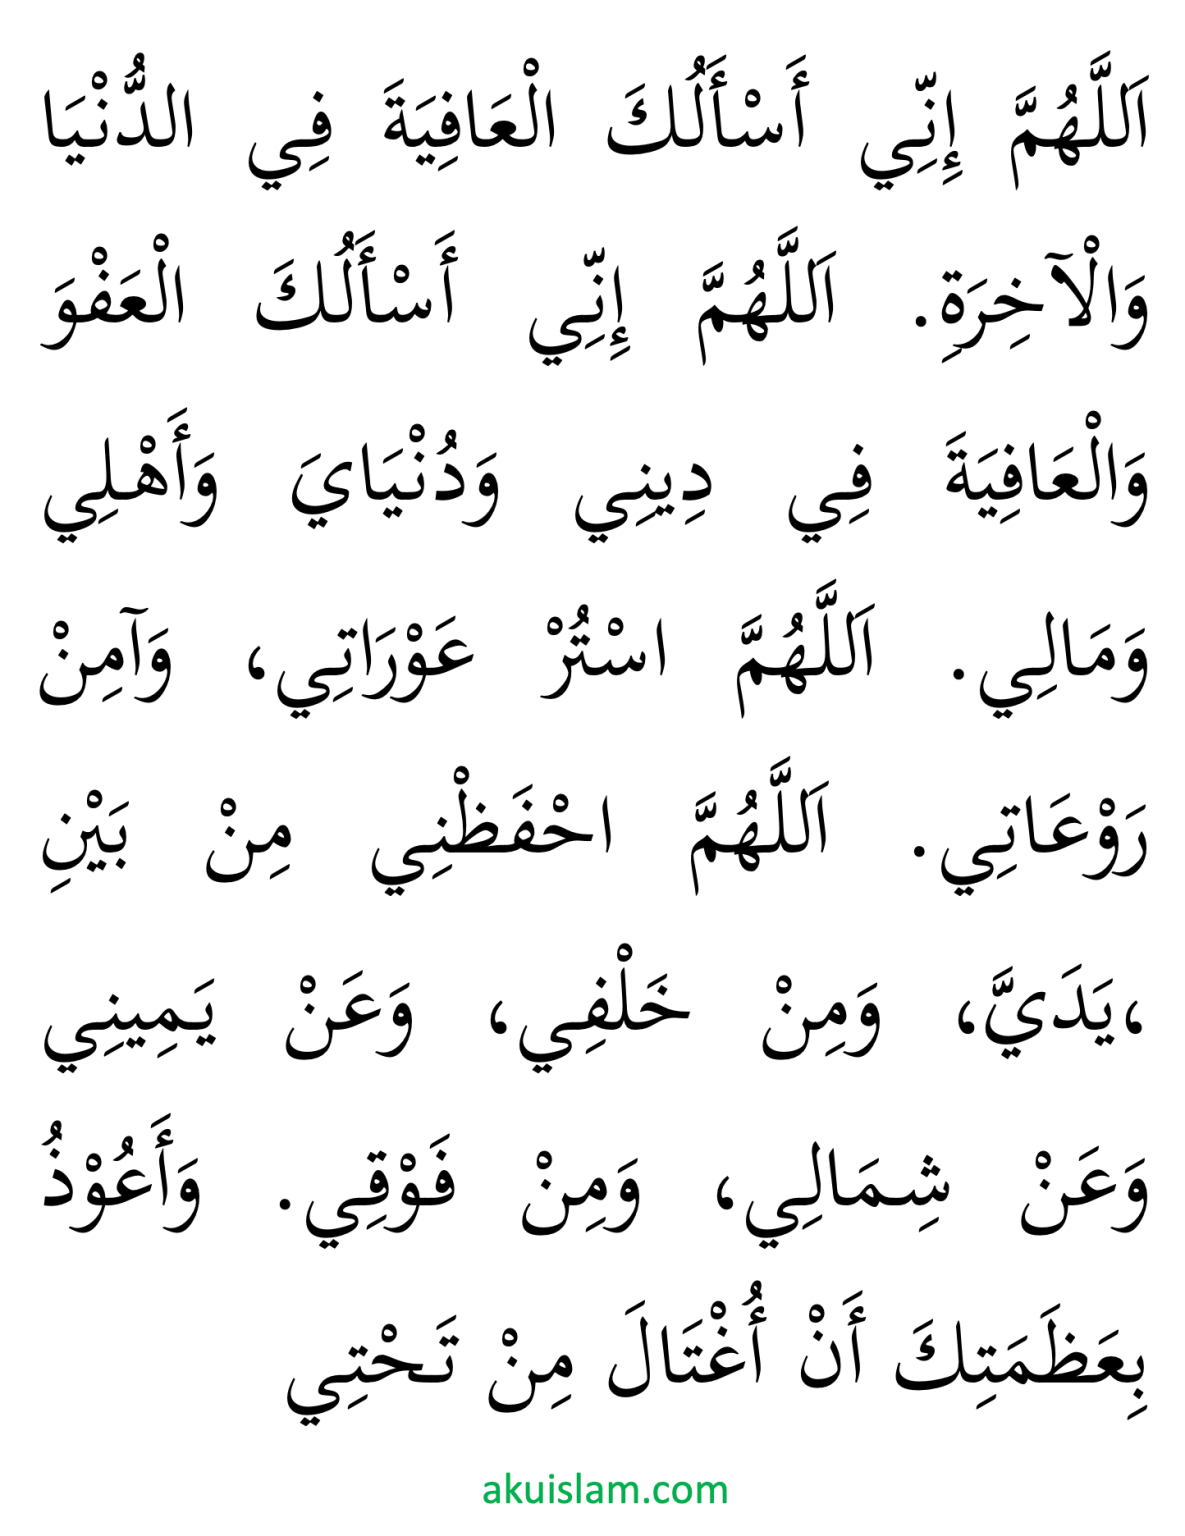 اَللَّهُمَّ إِنِّي أَسْأَلُكَ الْعَافِيَةَ فِي الدُّنْيَا
وَالْآخِرَةِ. اَللَّهُمَّ إِنِّي أَسْأَلُكَ الْعَفْوَ
وَالْعَافِيَةَ فِي دِينِي وَدُنْيَايَ وَأَهْلِي
وَمَالِي. اَللَّهُمَّ اسْتُرْ عَوْرَاتِي، وَآمِنْ
رَوْعَاتِي. اَللَّهُمَّ احْفَظْنِي مِنْ بَيْنِ
،يَدَيَّ، وَمِنْ خَلْفِي، وَعَنْ يَمِينِي
وَعَنْ شِمَالِي، وَمِنْ فَوْقِي. وَأَعُوْذُ
بِعَظَمَتِكَ أَنْ أُغْتَالَ مِنْ تَحْتِي
akuislam.com